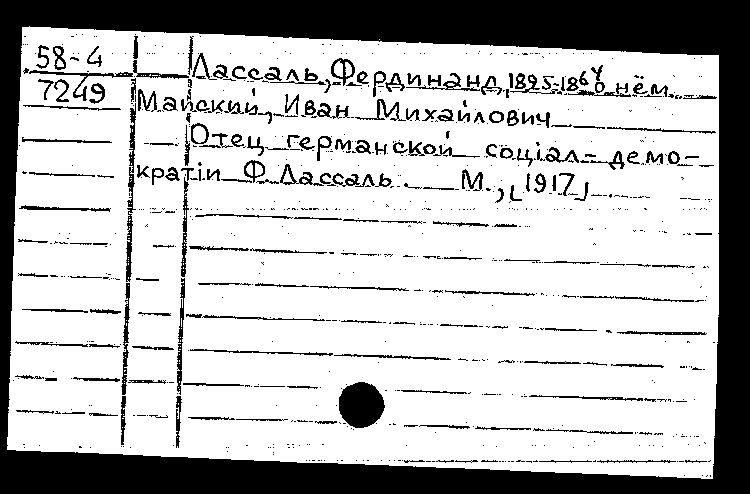 58-4 Лассаль, Фердинанд, 1825-1864 о нём
7249 Майский, Иван Михайлович
Отец германской соціал-демо-
кратіи Ф. Лассаль. М., [1917]